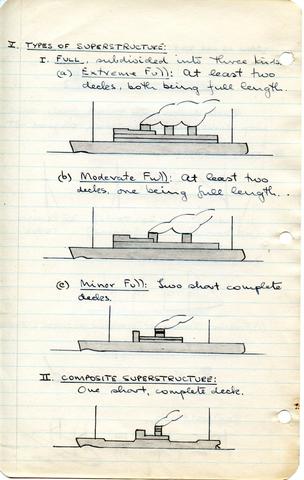 V. TYPES OF SUPERSTRUCTURE:
I. FULL, subdivided into three kinds
(a) Extreme Full: At least two
decks, both being full length.
(b) Moderate Full: At least two
decks, one being full length.
(c) Minor Full: Two short complete
decks.
II. COMPOSITE SUPERSTRUCTURE:
One short, complete deck.